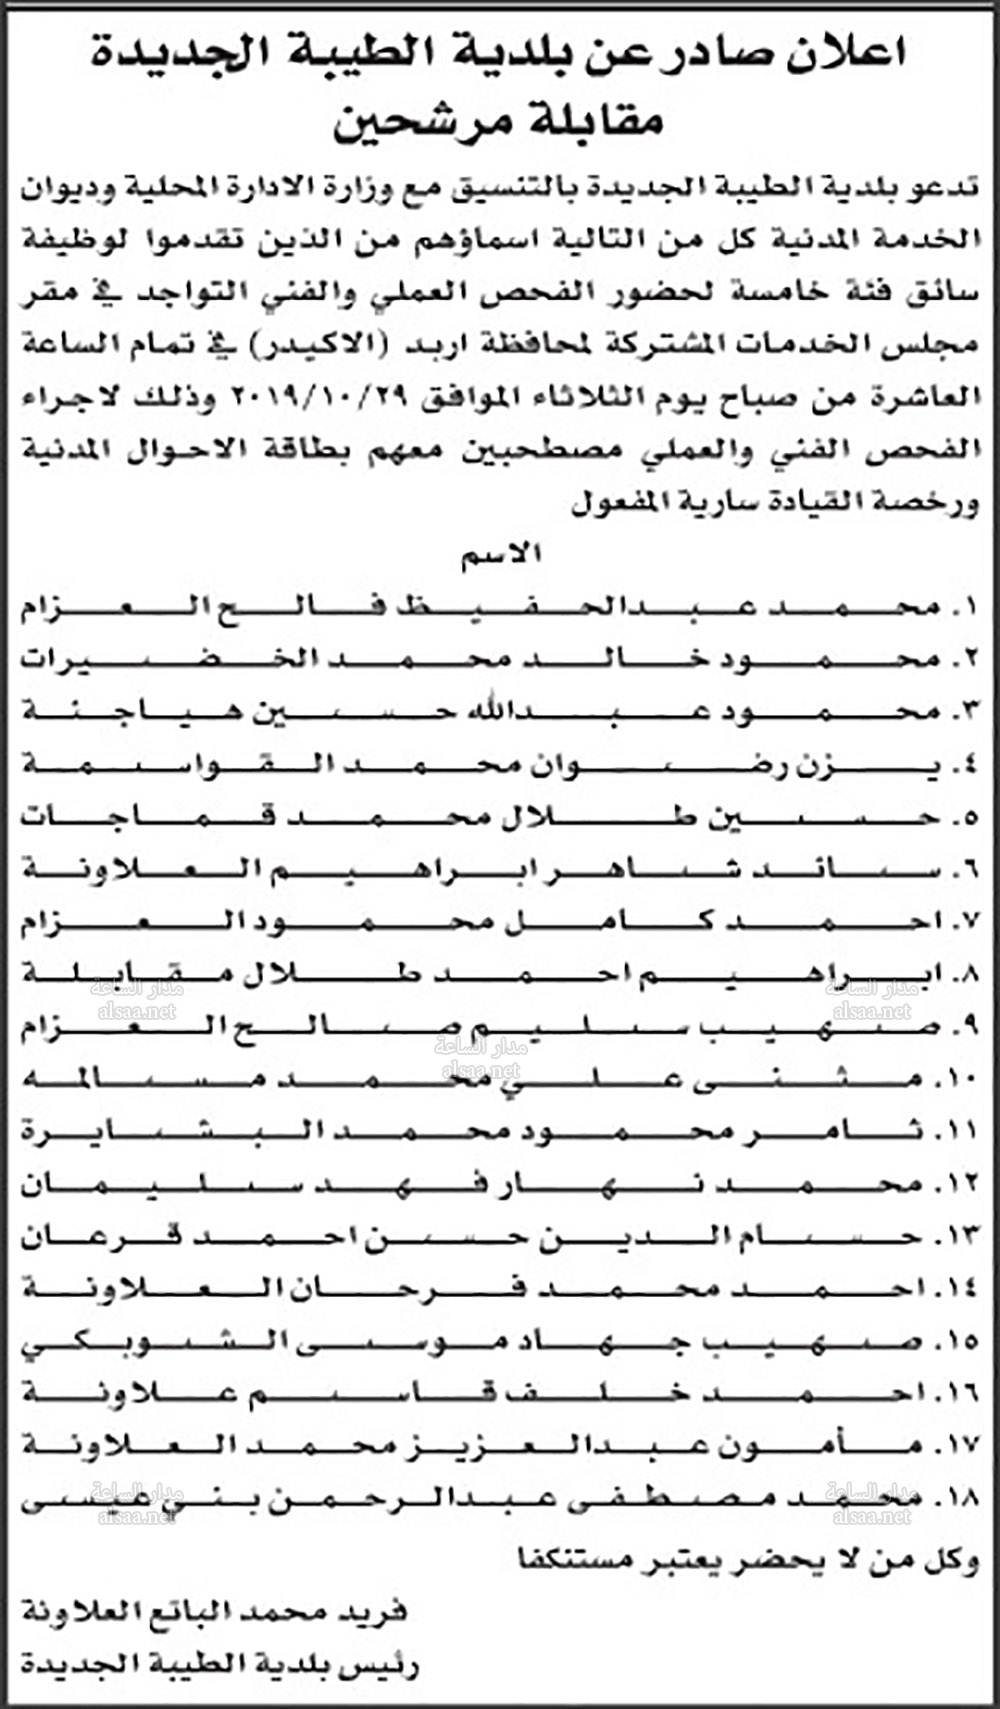 اعلان صادر عن بلدية الطيبة الجديدة
مقابلة مرشحين
تدعو بلدية الطيبة الجديدة بالتنسيق مع وزارة الادارة المحلية وديوان
الخدمة المدنية كل من التالية اسماؤهم من الذين تقدموا لوظيفة
سائق فئة خامسة لحضور الفحص العملي والفني التواجد في مقر
مجلس الخدمات المشتركة لمحافظة اربد (الاكيدر) في تمام الساعة
العاشرة من صباح يوم الثلاثاء الموافق ٢٠١٩/١٠/٢٩ وذلك لاجراء
الفحص الفني والعملي مصطحبين معهم بطاقة الاحوال المدنية
ورخصة القيادة سارية المفعول
الاسم
١. محمد عبدالحفيظ فالح العزام
٢. محمود خالد محمد الخضيرات
٣. محمود عبدالله حسين هياجنة
٤. يزن رضوان محمد القواسمة
٥. حسين طلال محمد قماجات
٦. سائد شاهر ابراهيم العلاونة
٧. احمد كامل محمود العزام
٨. ابراهيم احمد طلال مقابلة
مدار الساعة مدار الساعة
alsaa.net alsaa.net
٩. صهيب سليم صالح العزام
مدار الساعة
alsaa.net
١٠. مثنى علي محمد مسالمه
١١. ثامر محمود محمد البشايرة
١٢. محمد نهار فهد سليمان
١٣. حسام الدين حسن احمد قرعان
١٤. احمد محمد فرحان العلاونة
١٥. صهيب جهاد موسى الشوبكي
١٦. احمد خلف قاسم علاونة
١٧. مأمون عبدالعزيز محمد العلاونة
١٨. محمد مصطفى عبدالرحمن بني عيسى
مدار الساعة مدار الساعة
alsaa.net alsaa.net
وكل من لا يحضر يعتبر مستنكفا
فريد محمد الباتع العلاونة
رئيس بلدية الطيبة الجديدة